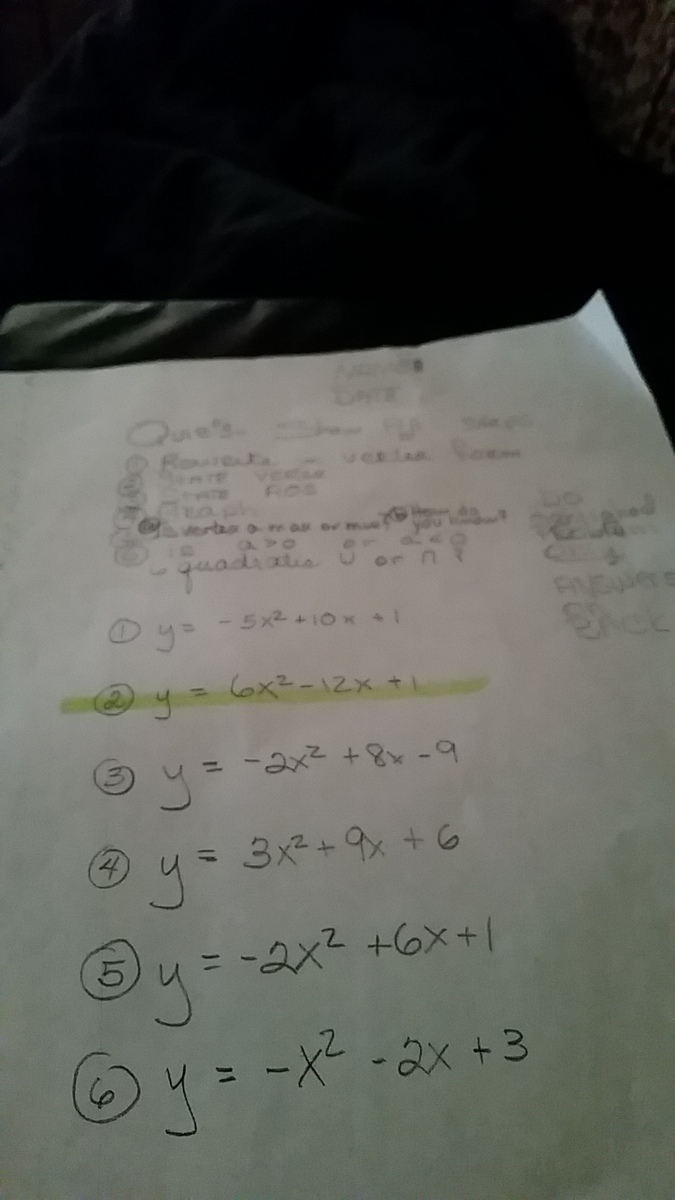 DATE
Show All Steps
① Rewrite - vertex Form
② STATE VERTEX
③ STATE AOS
④ Graph
vertex a max or min? How do you know?
is a>0 or a<0
quadratic U or ∩ ?
DO
ANSWERS
ON
BACK
① y = -5x²+10x+1
② y = 6x²-12x+1
③ y = -2x²+8x-9
④ y = 3x²+9x+6
⑤ y = -2x²+6x+1
⑥ y = -x²-2x+3